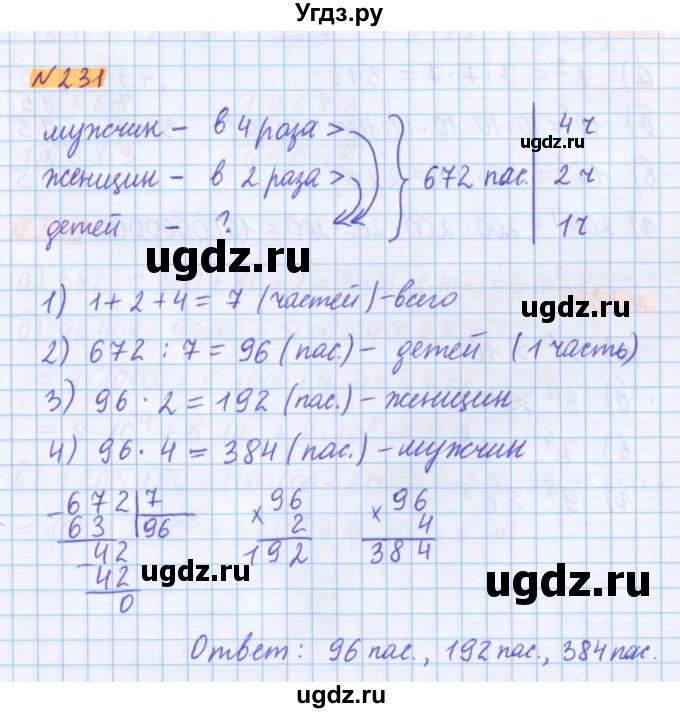 Угдз.ру
№231
мужчин – в 4 раза > 4 ч
женщин – в 2 раза > 672 пас. 2 ч
детей – ? 1 ч
ugdz.ru ugdz.ru
1) 1 + 2 + 4 = 7 (частей) – всего
2) 672 : 7 = 96 (пас.) – детей (1 часть)
3) 96 · 2 = 192 (пас.) – женщин
4) 96 · 4 = 384 (пас.) – мужчин
– 672 | 7 × 96 × 96
63 96 2 4
– 42 192 384
42 ugdz.ru ugdz.ru
0
Ответ: 96 пас., 192 пас., 384 пас.
ugdz.ru